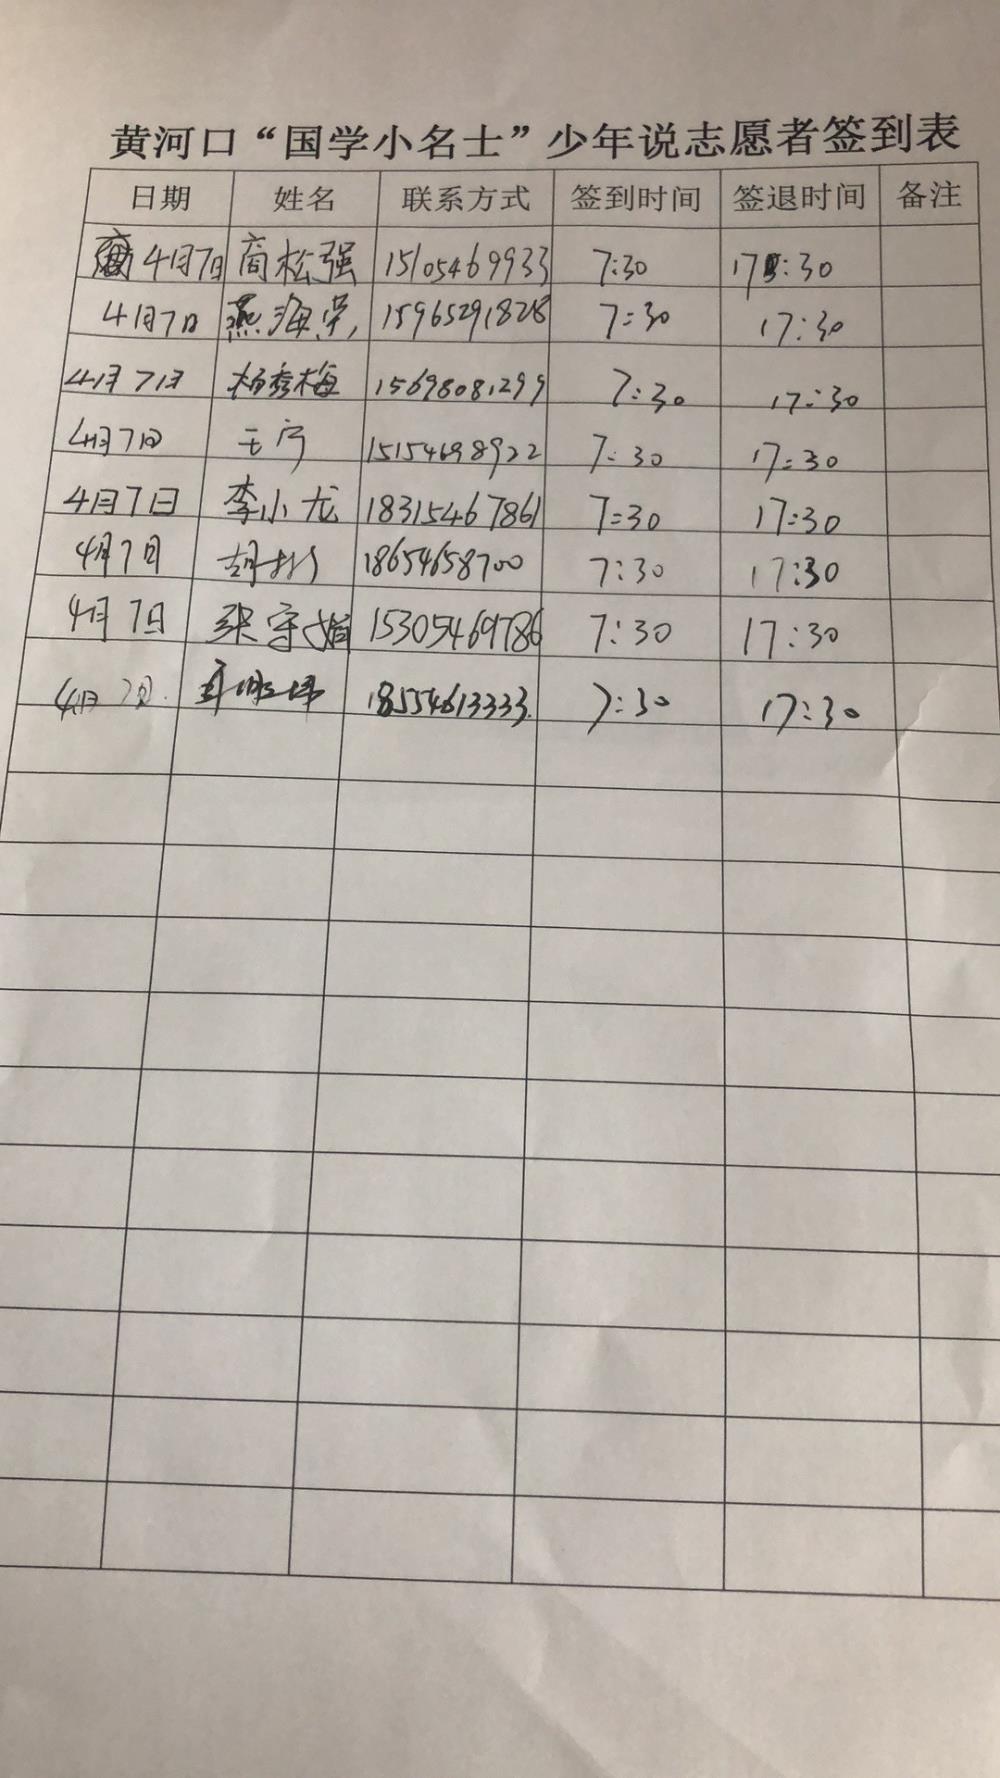 黄河口“国学小名士”少年说志愿者签到表
日期 姓名 联系方式 签到时间 签退时间 备注
4月7日 商松强 15105469933 7:30 17:30
4月7日 燕海荣 15965291828 7:30 17:30
4月7日 杨秀梅 15698081299 7:30 17:30
4月7日 王宁 15154698922 7:30 17:30
4月7日 李小龙 18315467861 7:30 17:30
4月7日 胡 18654658700 7:30 17:30
4月7日 张守娟 15305469786 7:30 17:30
4月7日 18554613333 7:30 17:30